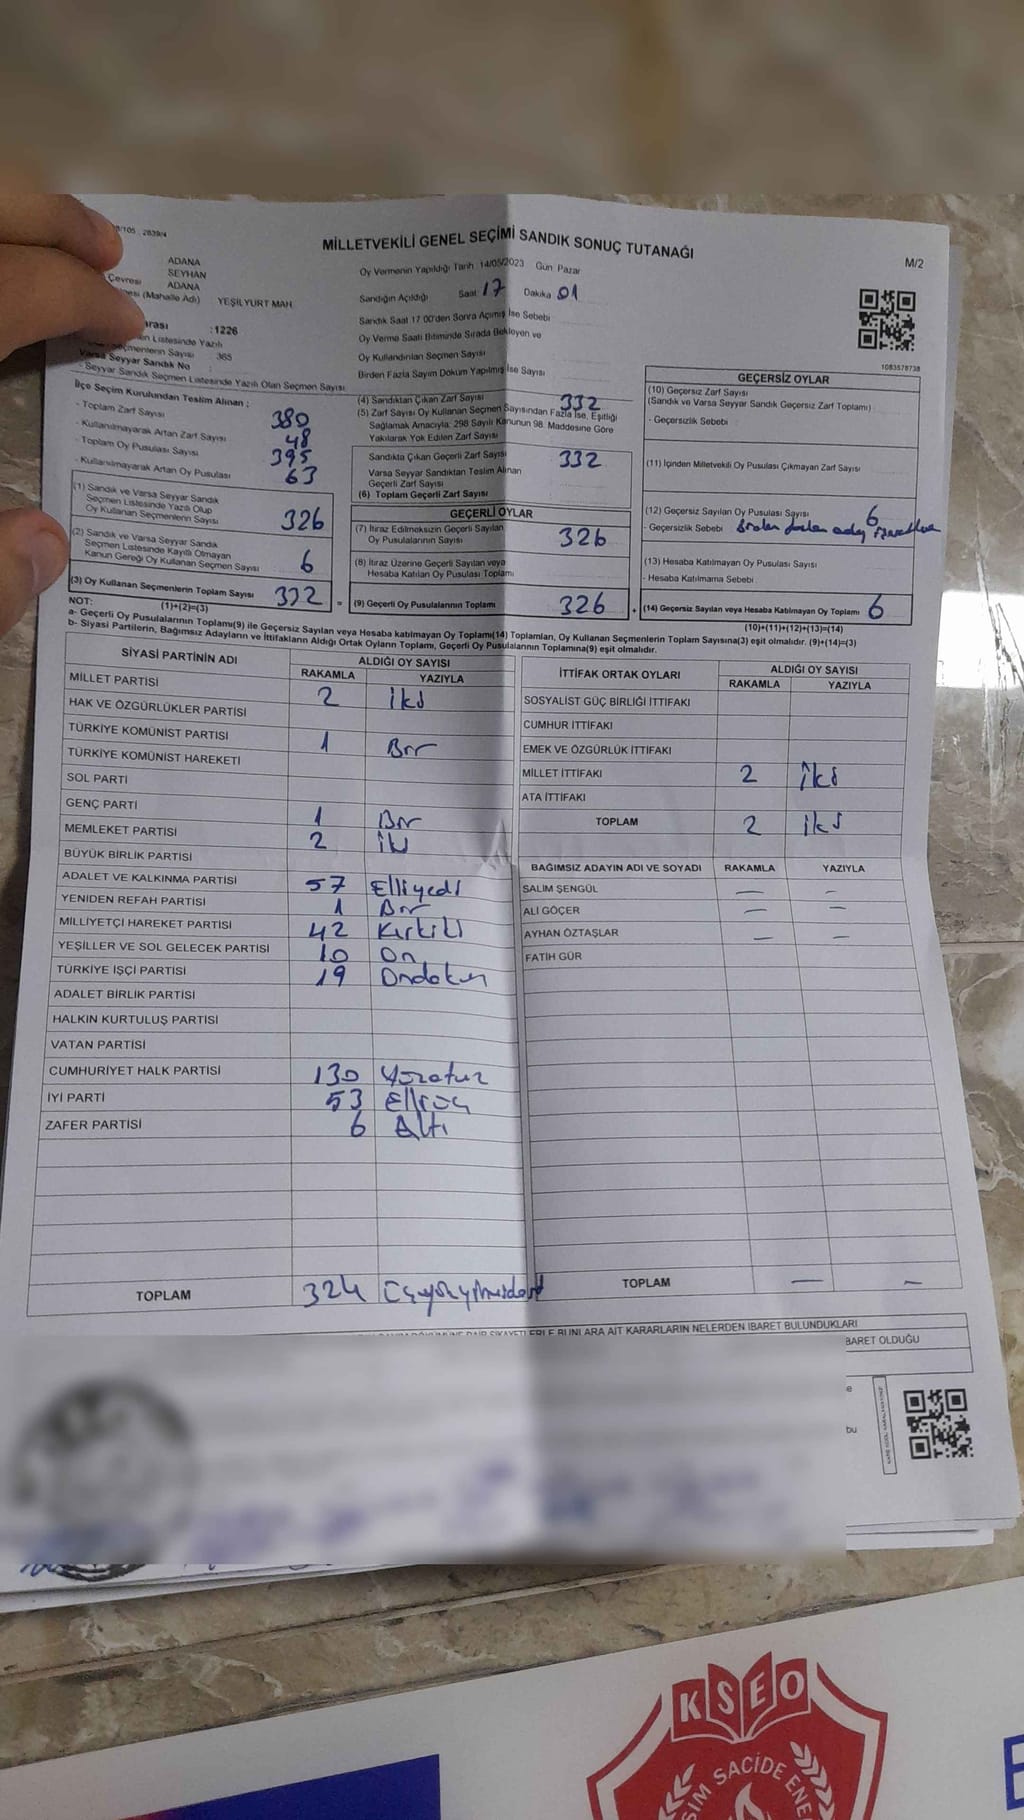 MİLLETVEKİLİ GENEL SEÇİMİ SANDIK SONUÇ TUTANAĞI
M/2
ADANA
SEYHAN
Çevresi ADANA
(Mahalle Adı) YEŞİLYURT MAH.
:1226
Listesinde Yazılı
Seçmenlerin Sayısı 365
Varsa Seyyar Sandık No :
- Seyyar Sandık Seçmen Listesinde Yazılı Olan Seçmen Sayısı
Oy Vermenin Yapıldığı Tarih 14/05/2023 Gün Pazar
Sandığın Açıldığı Saat 17 Dakika 01
Sandık Saat 17.00'den Sonra Açımış İse Sebebi
Oy Verme Saati Bitiminde Sırada Bekleyen ve
Oy Kullandırılan Seçmen Sayısı
Birden Fazla Sayım Döküm Yapılmış İse Sayısı
1083578738
İlçe Seçim Kurulundan Teslim Alınan :
- Toplam Zarf Sayısı 380
- Kullanılmayarak Artan Zarf Sayısı 48
- Toplam Oy Pusulası Sayısı 395
- Kullanılmayarak Artan Oy Pusulası 63
(1) Sandık ve Varsa Seyyar Sandık
Seçmen Listesinde Yazılı Olup
Oy Kullanan Seçmenlerin Sayısı 326
(2) Sandık ve Varsa Seyyar Sandık
Seçmen Listesinde Kayıtlı Olmayan
Kanun Gereği Oy Kullanan Seçmen Sayısı 6
(3) Oy Kullanan Seçmenlerin Toplam Sayısı 332
(1)+(2)=(3)
(4) Sandıktan Çıkan Zarf Sayısı 332
(5) Zarf Sayısı Oy Kullanan Seçmen Sayısından Fazla İse, Eşitliği
Sağlamak Amacıyla: 298 Sayılı Kanunun 98. Maddesine Göre
Yakılarak Yok Edilen Zarf Sayısı
Sandıkta Çıkan Geçerli Zarf Sayısı 332
Varsa Seyyar Sandıktan Teslim Alınan
Geçerli Zarf Sayısı
(6) Toplam Geçerli Zarf Sayısı
GEÇERLİ OYLAR
(7) İtiraz Edilmeksizin Geçerli Sayılan
Oy Pusulalarının Sayısı 326
(8) İtiraz Üzerine Geçerli Sayılan veya
Hesaba Katılan Oy Pusulası Toplamı
= (9) Geçerli Oy Pusulalarının Toplamı 326
GEÇERSİZ OYLAR
(10) Geçersiz Zarf Sayısı
(Sandık ve Varsa Seyyar Sandık Geçersiz Zarf Toplamı)
- Geçersizlik Sebebi
(11) İçinden Milletvekili Oy Pusulası Çıkmayan Zarf Sayısı
(12) Geçersiz Sayılan Oy Pusulası Sayısı 6
- Geçersizlik Sebebi
(13) Hesaba Katılmayan Oy Pusulası Sayısı
- Hesaba Katılmama Sebebi
+ (14) Geçersiz Sayılan veya Hesaba Katılmayan Oy Toplamı 6
(10)+(11)+(12)+(13)=(14)
NOT:
a- Geçerli Oy Pusulaları Toplamı(9) ile Geçersiz Sayılan veya Hesaba katılmayan Oy Toplamı(14) Toplamları, Oy Kullanan Seçmenlerin Toplam Sayısına(3) eşit olmalıdır. (9)+(14)=(3)
b- Siyasi Partilerin, Bağımsız Adayların ve İttifakların Aldığı Ortak Oyların Toplamı, Geçerli Oy Pusulalarının Toplamına(9) eşit olmalıdır.
SİYASİ PARTİNİN ADI ALDIĞI OY SAYISI
RAKAMLA YAZIYLA
MİLLET PARTİSİ 2 iki
HAK VE ÖZGÜRLÜKLER PARTİSİ
TÜRKİYE KOMÜNİST PARTİSİ 1 Bir
TÜRKİYE KOMÜNİST HAREKETİ
SOL PARTİ
GENÇ PARTİ 1 Bir
MEMLEKET PARTİSİ 2 iki
BÜYÜK BİRLİK PARTİSİ
ADALET VE KALKINMA PARTİSİ 57 Elliyedi
YENİDEN REFAH PARTİSİ 1 Bir
MİLLİYETÇİ HAREKET PARTİSİ 42 Kırkiki
YEŞİLLER VE SOL GELECEK PARTİSİ 10 On
TÜRKİYE İŞÇİ PARTİSİ 19 Ondokuz
ADALET BİRLİK PARTİSİ
HALKIN KURTULUŞ PARTİSİ
VATAN PARTİSİ
CUMHURİYET HALK PARTİSİ 130 Yüzotuz
İYİ PARTİ 53 Elliüç
ZAFER PARTİSİ 6 Altı
TOPLAM 324 Üçyüzyirmidört
İTTİFAK ORTAK OYLARI ALDIĞI OY SAYISI
RAKAMLA YAZIYLA
SOSYALİST GÜÇ BİRLİĞİ İTTİFAKI
CUMHUR İTTİFAKI
EMEK VE ÖZGÜRLÜK İTTİFAKI
MİLLET İTTİFAKI 2 iki
ATA İTTİFAKI
TOPLAM 2 iki
BAĞIMSIZ ADAYIN ADI VE SOYADI RAKAMLA YAZIYLA
SALİM ŞENGÜL — —
ALİ GÖÇER — —
AYHAN ÖZTAŞLAR — —
FATİH GÜR
TOPLAM — —
ŞİKAYETLERLE BUNLARA AİT KARARLARIN NELERDEN İBARET BULUNDUKLARI
BARET OLDUĞU
bu
KSEO
SACİDE